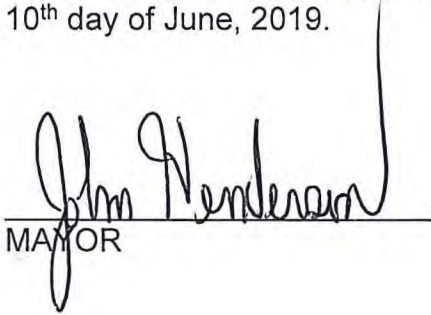 10th day of June, 2019.
John Henderson
MAYOR